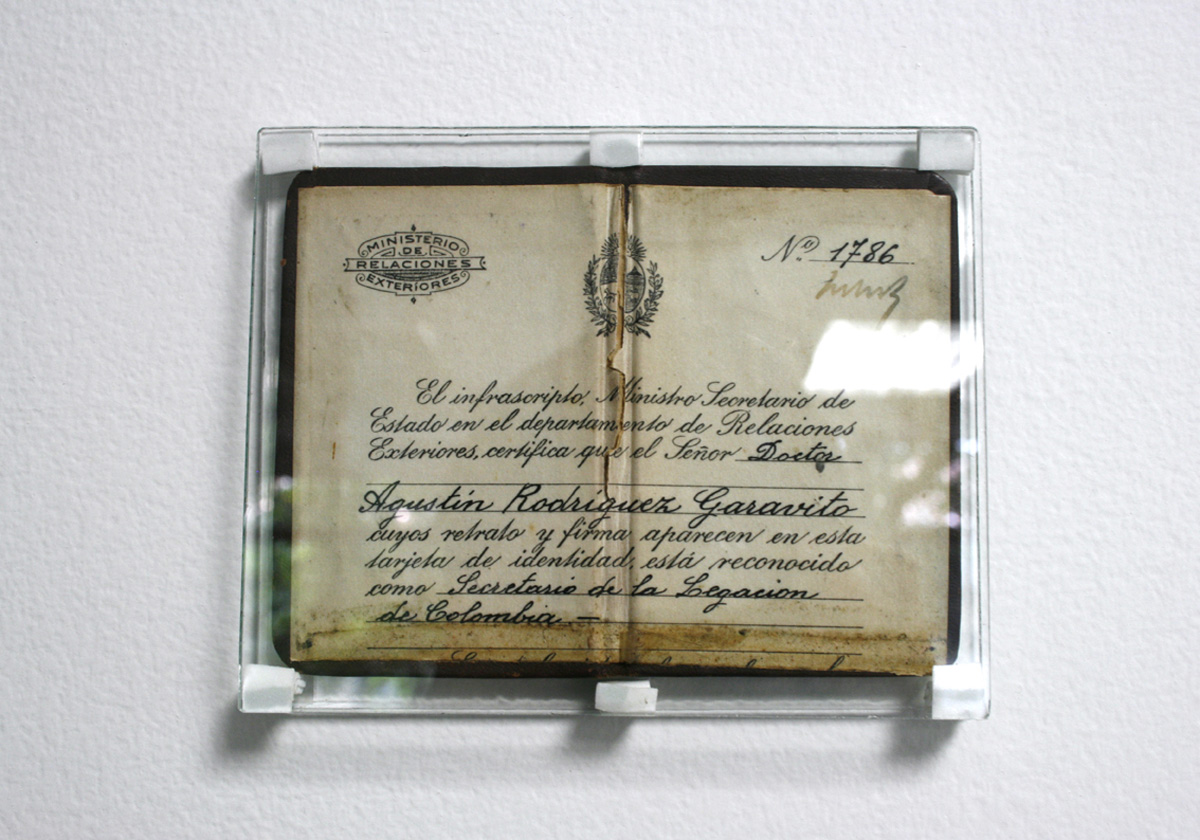 MINISTERIO
DE
RELACIONES
EXTERIORES
Nº 1786
El infrascripto, Ministro Secretario de
Estado en el departamento de Relaciones
Exteriores, certifica que el Señor Doctor
Agustín Rodríguez Garavito
cuyos retrato y firma aparecen en esta
tarjeta de identidad, está reconocido
como Secretario de la Legacion
de Colombia —